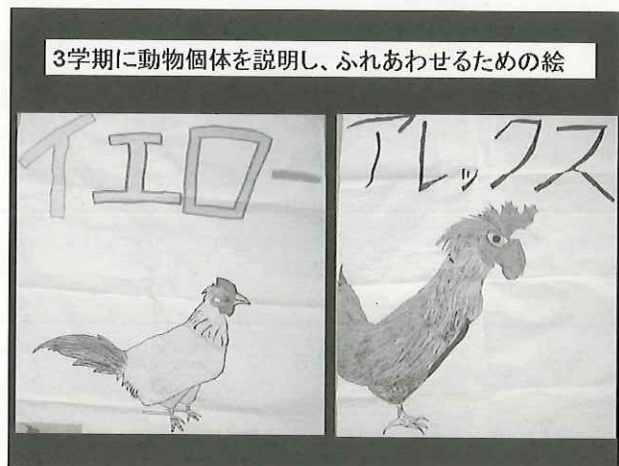 3学期に動物個体を説明し、ふれあわせるための絵
イエロー
アレックス